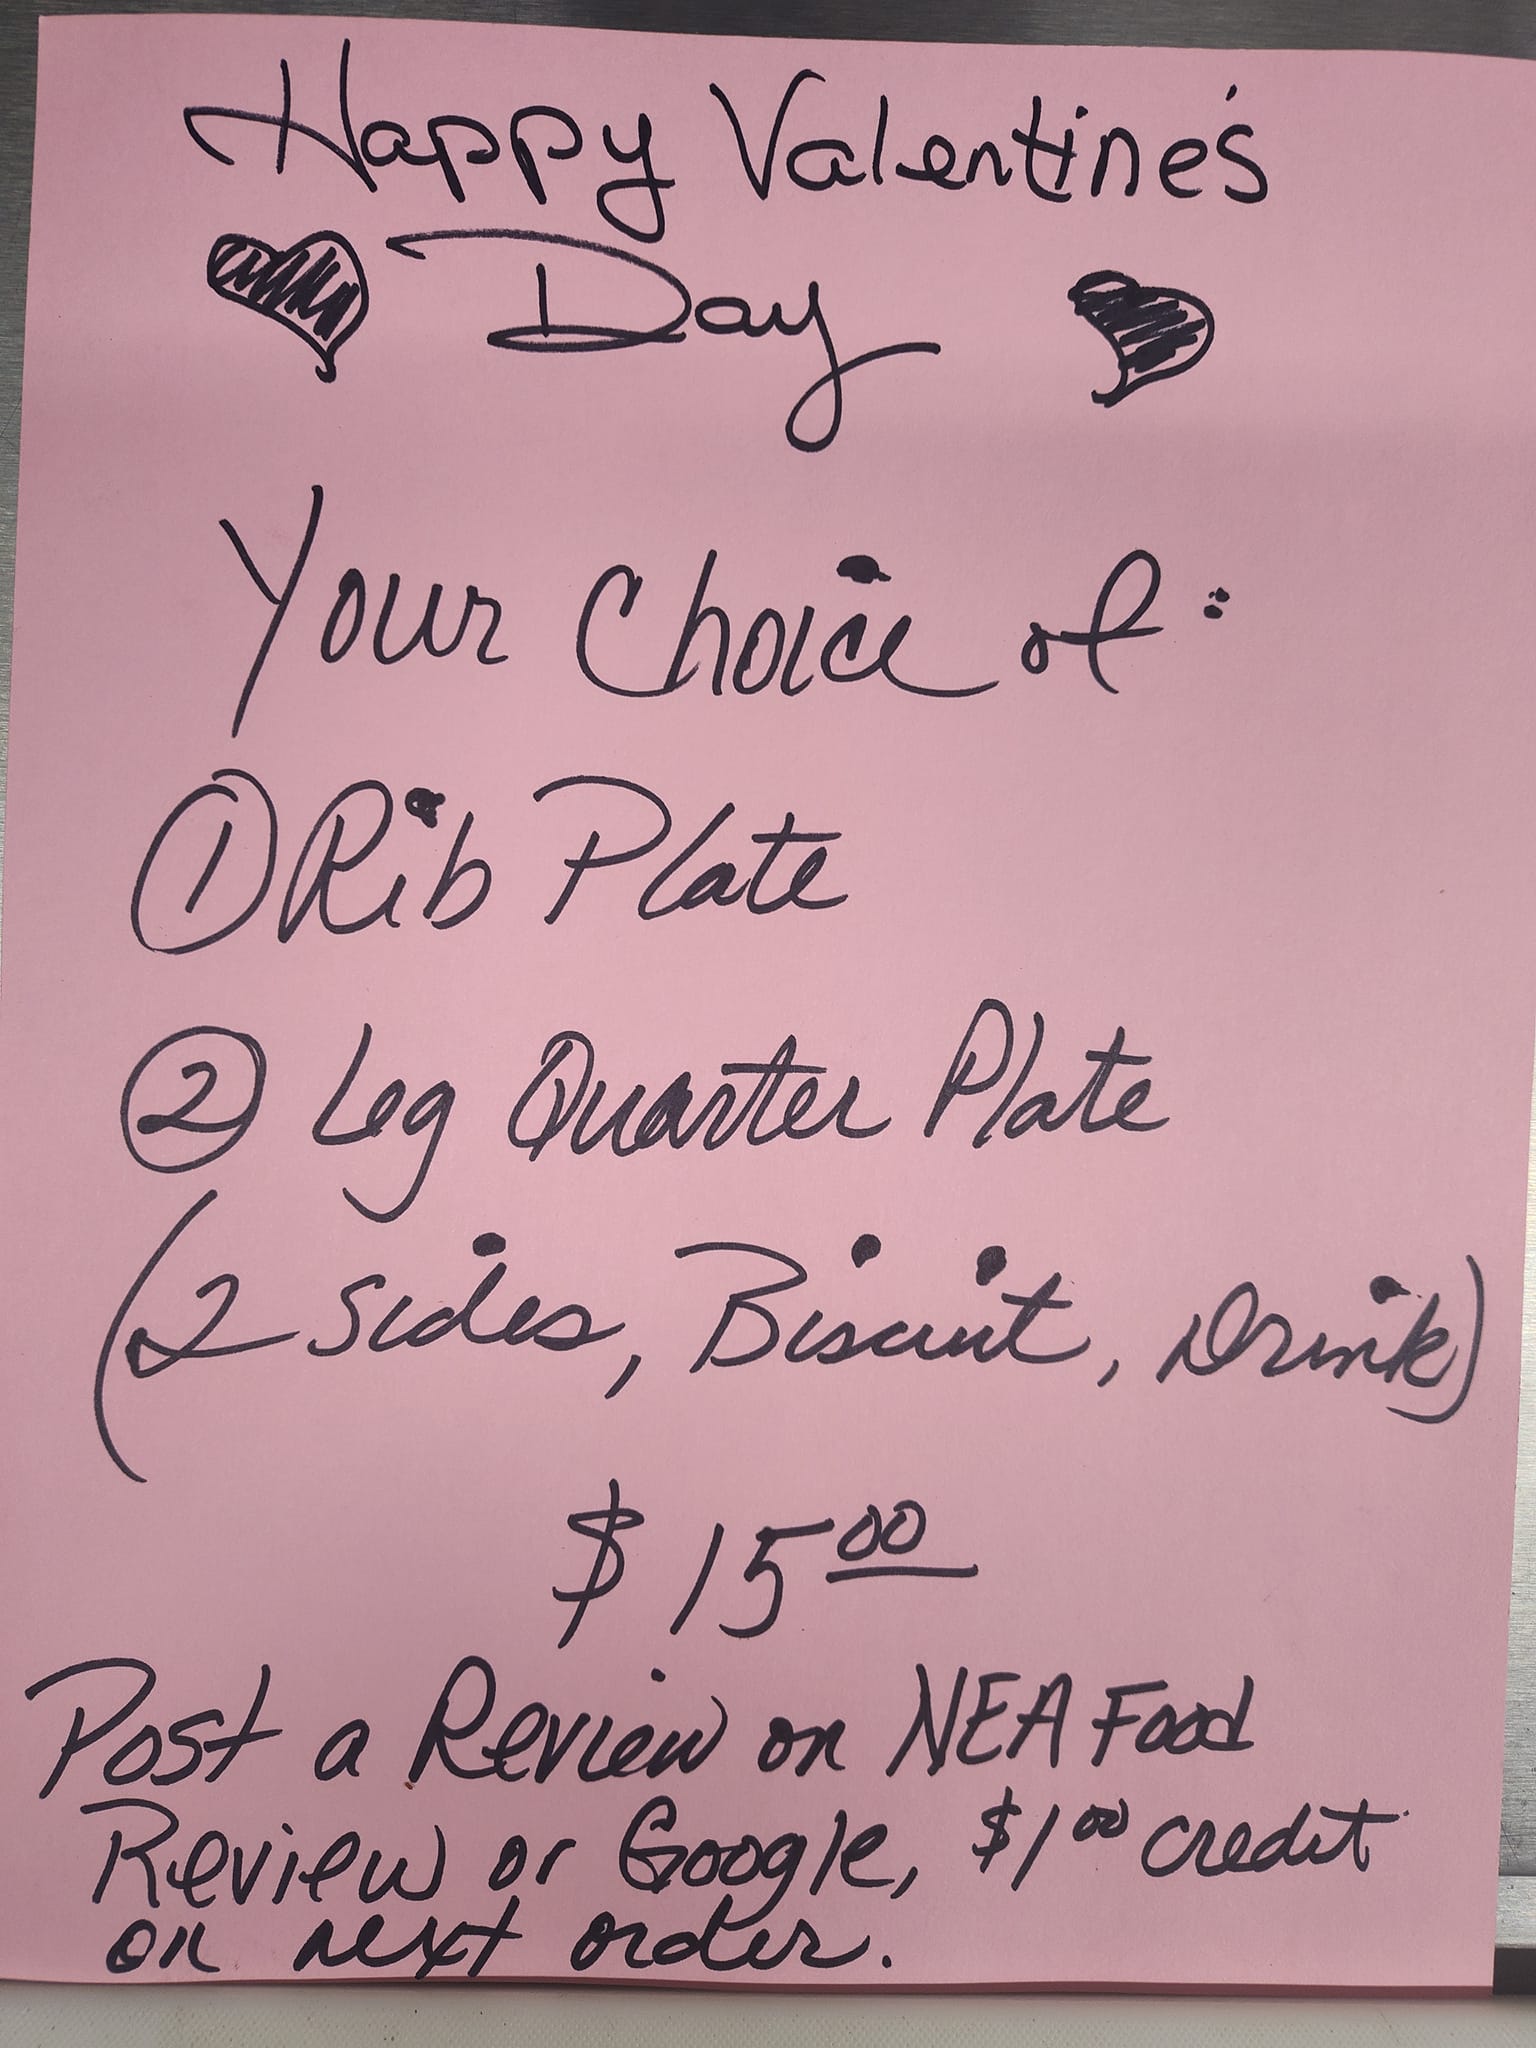 Happy Valentine's
Day
Your Choice of:
① Rib Plate
② Leg Quarter Plate
(2 sides, Biscuit, Drink)
$15.00
Post a Review on NEA Food
Review or Google, $1.00 credit
on next order.